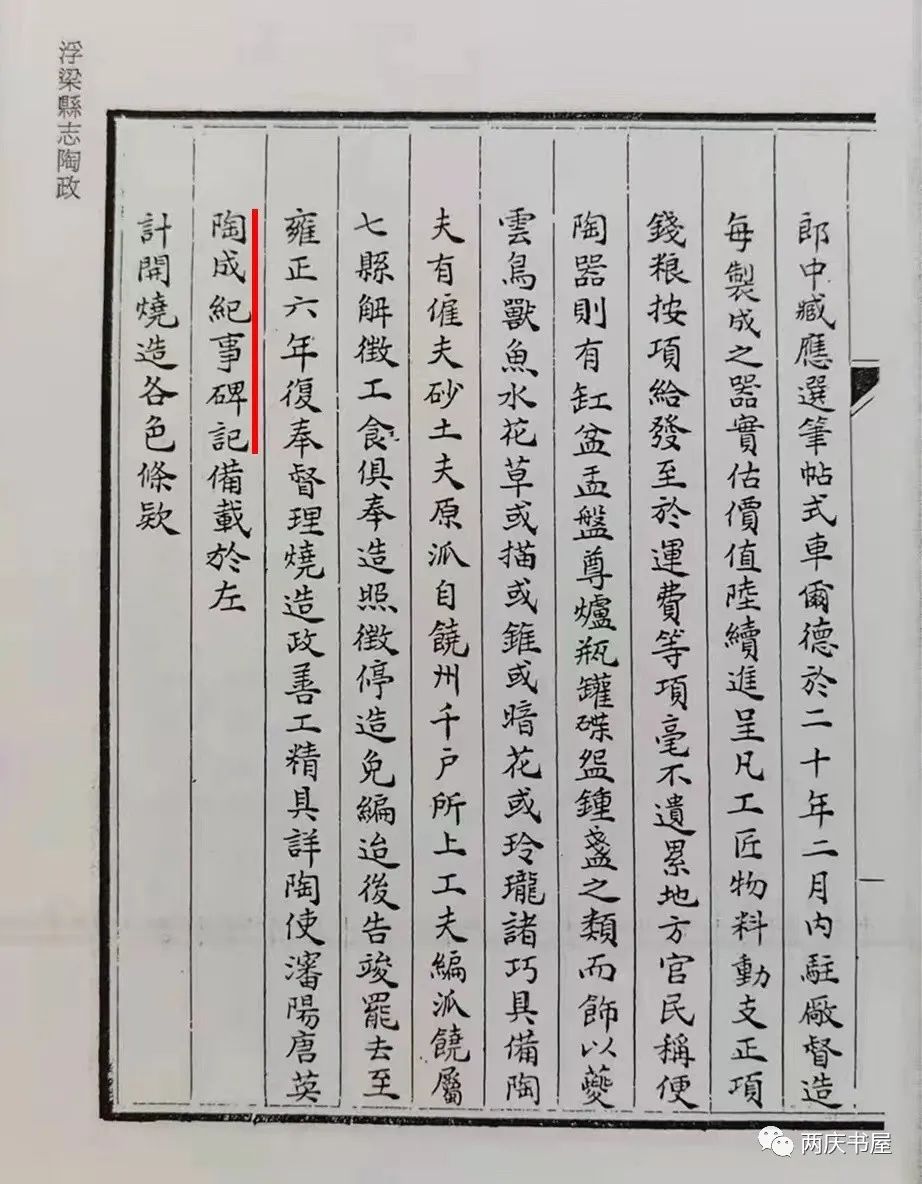 浮梁縣志陶政
郎中臧應選筆帖式車爾德於二十年二月內駐厰督造
每製成之器實估價值陸續進呈凡工匠物料動支正項
錢粮按項給發至於運費等項毫不遺累地方官民稱便
陶器則有缸盆盂盤尊爐瓶罐碟盌鍾盞之類而飾以夔
雲鳥獸魚水花草或描或錐或暗花或玲瓏諸巧具備陶
夫有僱夫砂土夫原派自饒州千户所上工夫編派饒屬
七縣解徵工食俱奉造照徵停造免編迨後告竣罷去至
雍正六年復奉督理燒造政善工精具詳陶使瀋陽唐英
陶成紀事碑記備載於左
計開燒造各色條欵
两庆书屋